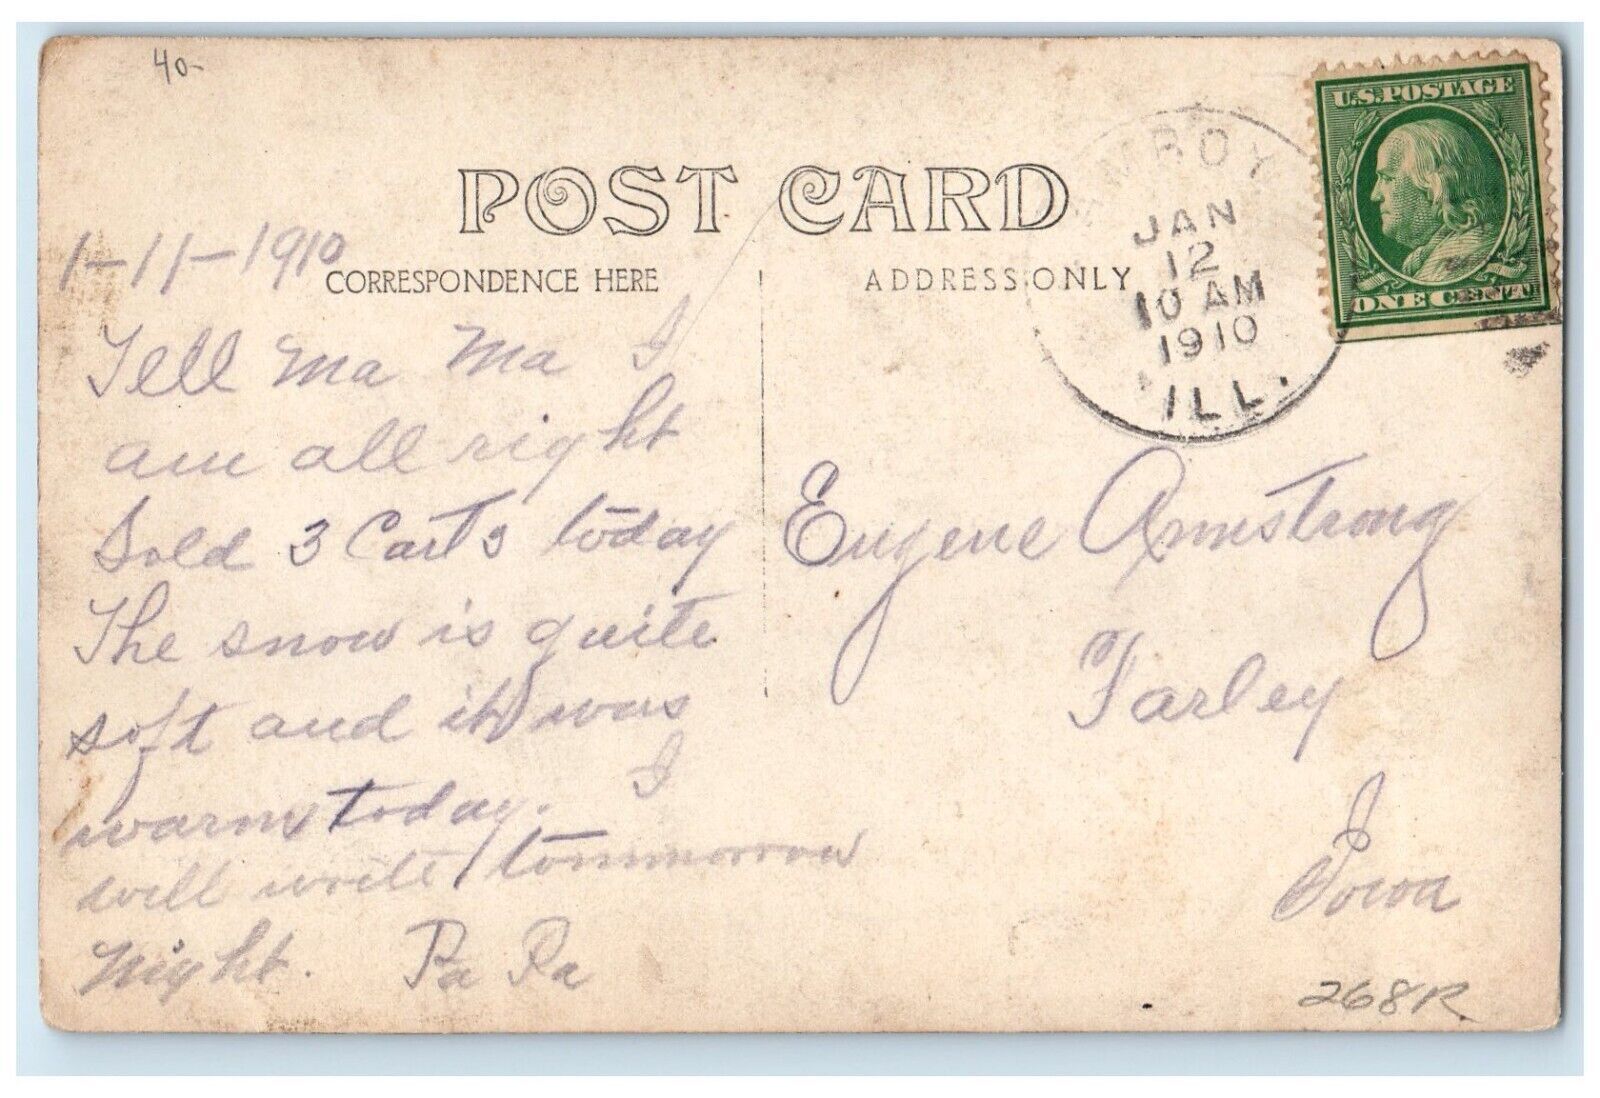 40-
U.S. POSTAGE
ONE CENT
MBOY
JAN
12
10 AM
1910
ILL.
POST CARD
CORRESPONDENCE HERE
ADDRESS ONLY
1-11-1910
Tell Ma Ma I
am all right
Sold 3 Carts today
The snow is quite
soft and it was
warm today. I
will write tommorrow
Night. Pa Pa
Eugene Armstrong
Farley
Iowa
268R